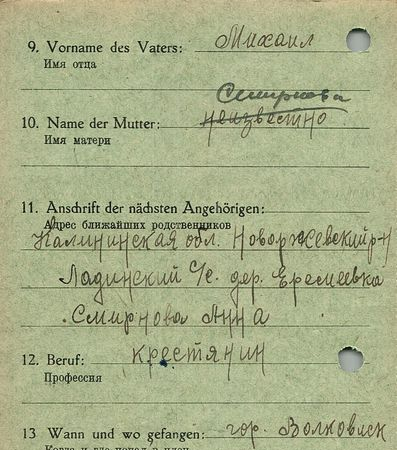 9. Vorname des Vaters: Михаил
Имя отца
Смирнова
10. Name der Mutter: неизвестно
Имя матери
11. Anschrift der nächsten Angehörigen:
Адрес ближайших родственников
Калининская обл. Новоржевский р-н
Ладинский с/с. дер. Еремеевка
Смирнова Анна
12. Beruf: крестянин
Профессия
13 Wann und wo gefangen: гор. Волковиск
Когда и где попал в плен